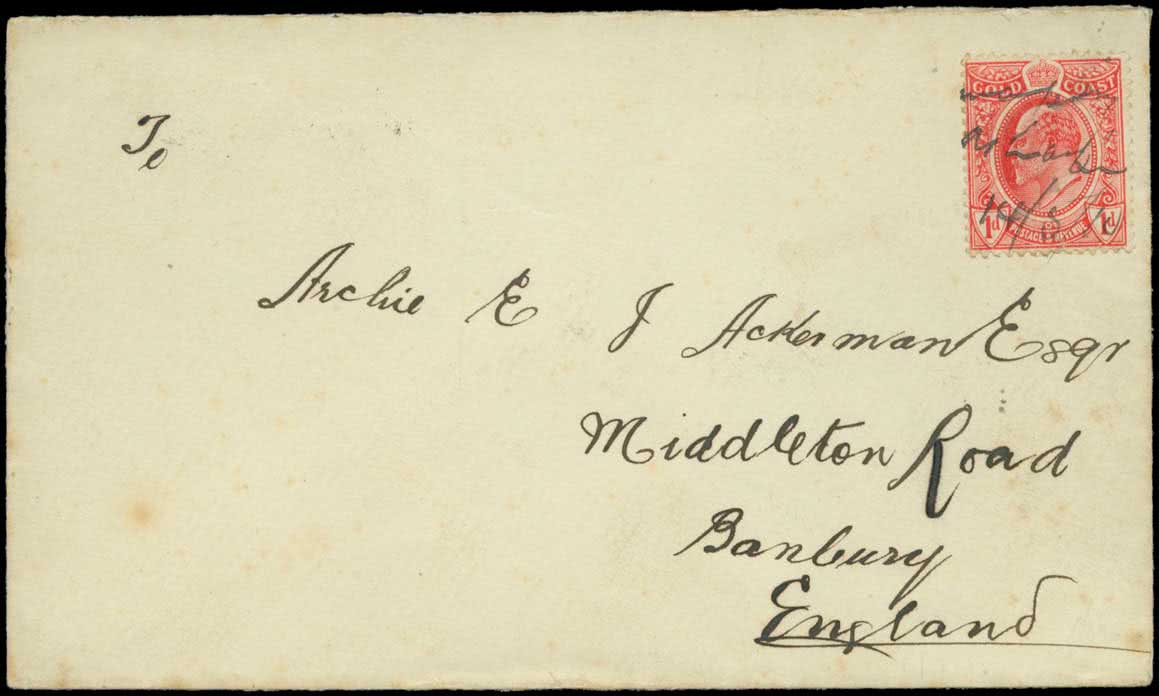 GOLD COAST
1d POSTAGE & REVENUE 1d
To
Archie E J Ackerman Esqr
Middleton Road
Banbury
England